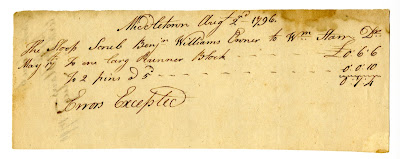 Middletown Aug 2d 1796.
The Sloop Scrub Benjn Williams Owner to Wm Harr Dr.
May 17 To one larg Runner Block £0"6"6
To 2 pins a 5d 0"0"10
0"7"4
Errors Excepted